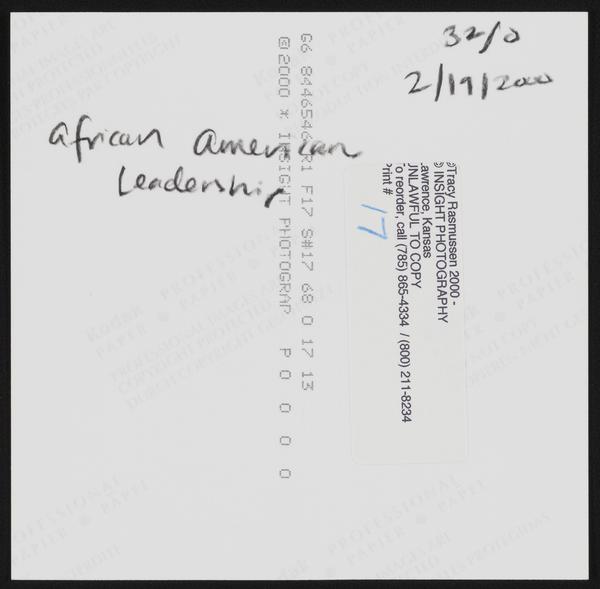 32/0
2/19/2000
African American
Leadership
G6 8446546 R1 F17 S#17 68 0 17 13
©2000 * INSIGHT PHOTOGRAP P 0 0 0 0
©Tracy Rasmussen 2000 -
© INSIGHT PHOTOGRAPHY
awrence, Kansas
UNLAWFUL TO COPY
o reorder, call (785) 865-4334 / (800) 211-8234
rint #
17